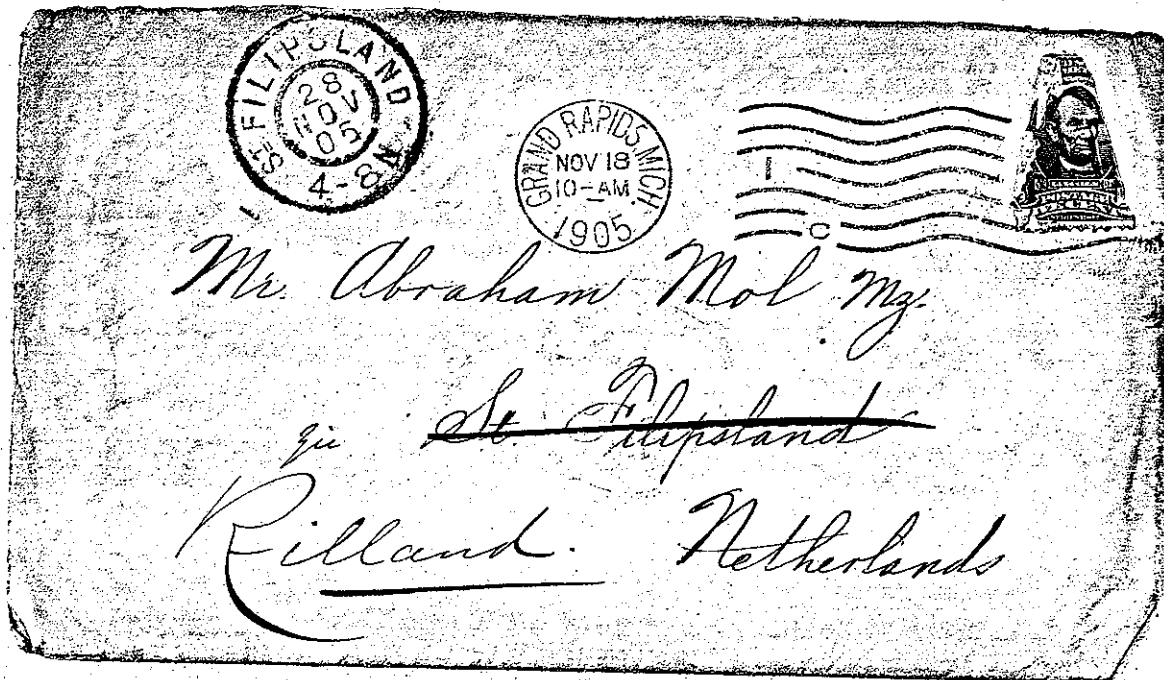 St FILIPSLAND
28
NOV
05
4-8N
GRAND RAPIDS, MICH.
NOV 18
10-AM
1905
1
C
Mr. Abraham Mol Mz.
St Filipsland
Rilland. Netherlands